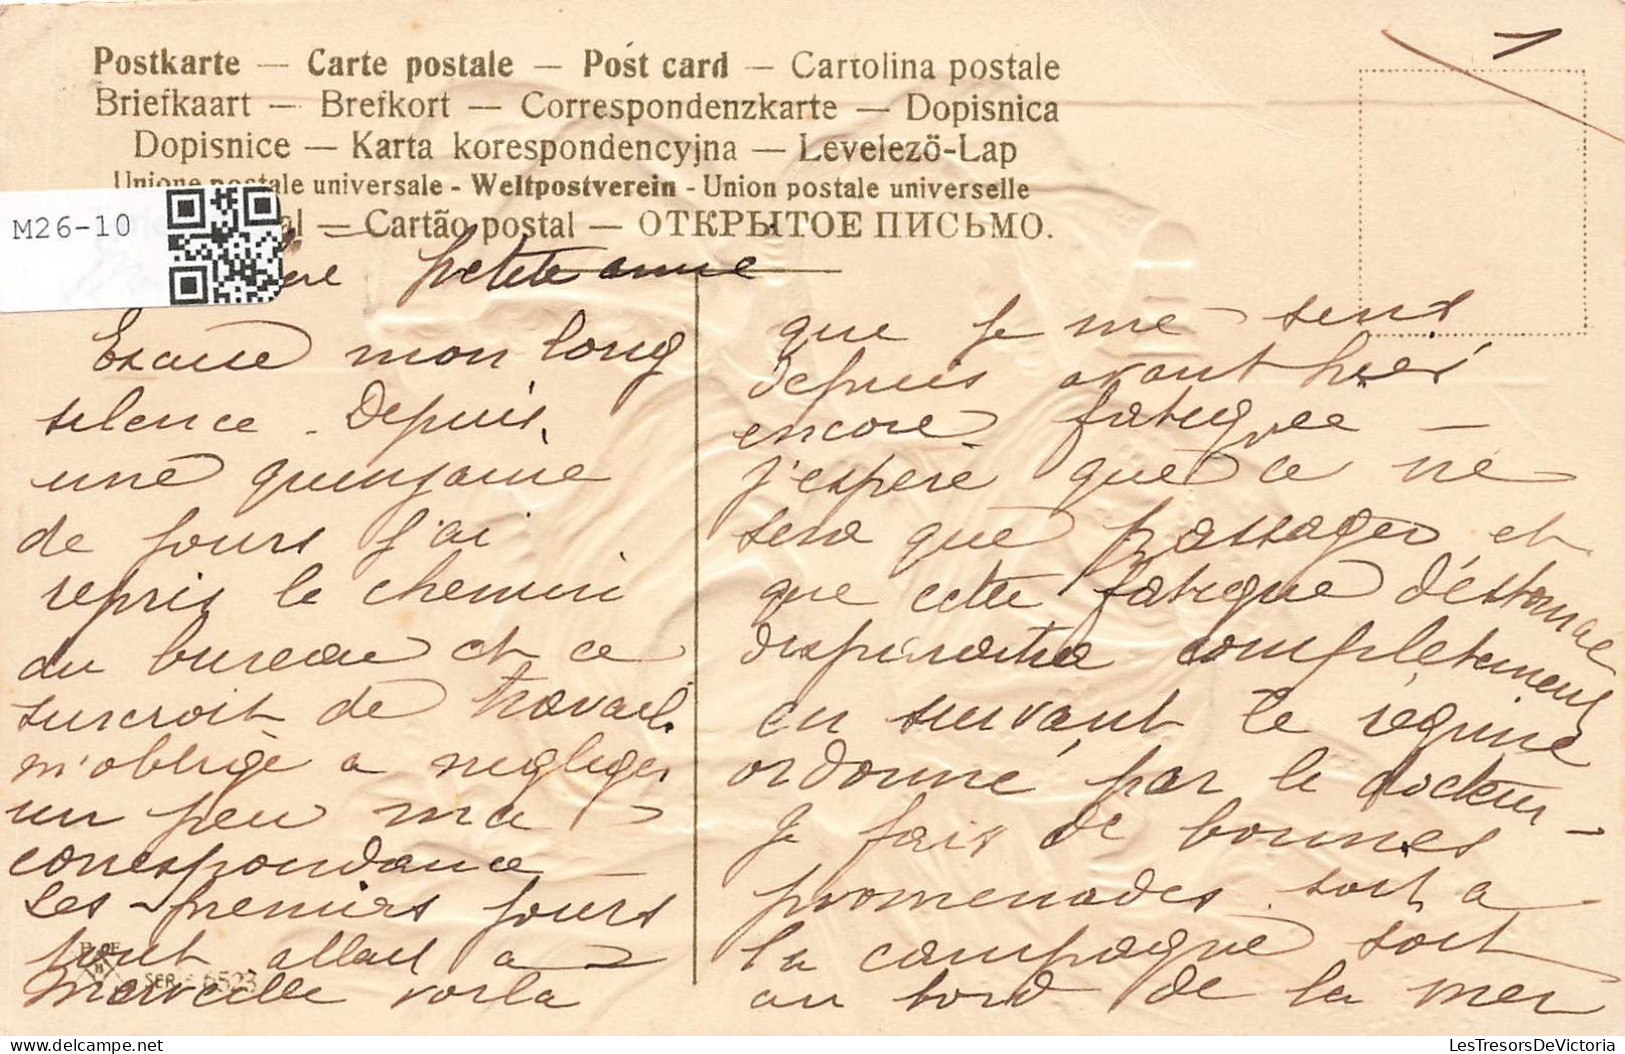 Postkarte — Carte postale — Post card — Cartolina postale
Briefkaart — Brefkort — Correspondenzkarte — Dopisnica
Dopisnice — Karta korespondencyjna — Levelező-Lap
Unione postale universale - Weltpostverein - Union postale universelle
— Cartão postal — ОТКРЫТОЕ ПИСЬМО.
M26-10
1
petite amie
Excuse mon long
silence. Depuis
une quinzaine
de jours j'ai
repris le chemin
du bureau et ce
surcroit de travail
m'oblige a negliger
un peu ma
correspondance —
Les premiers jours
tout allait a
merveille voila
SER. 6523
que je me sens
depuis avant hier
encore fatiguée —
j'espère que ce ne
sera que passager et
que cette fatigue d'estomac
disparaitra complètement
en suivant le régime
ordonné par le docteur —
Je fais de bonnes
promenades soit a
la campagne soit
au bord de la mer
delcampe.net
LesTresorsDeVictoria